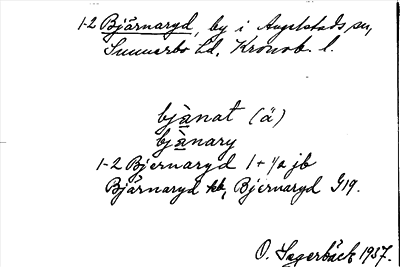 1-2 Bjärnaryd, by i Angelstads sn,
Sunnerbo hd, Kronob. l.
bjànat (ä)
bjànary
1-2 Bjernaryd 1+1/2 jb
Bjärnaryd kb, Bjernaryd G19.
O. Sagerbäck 1937.